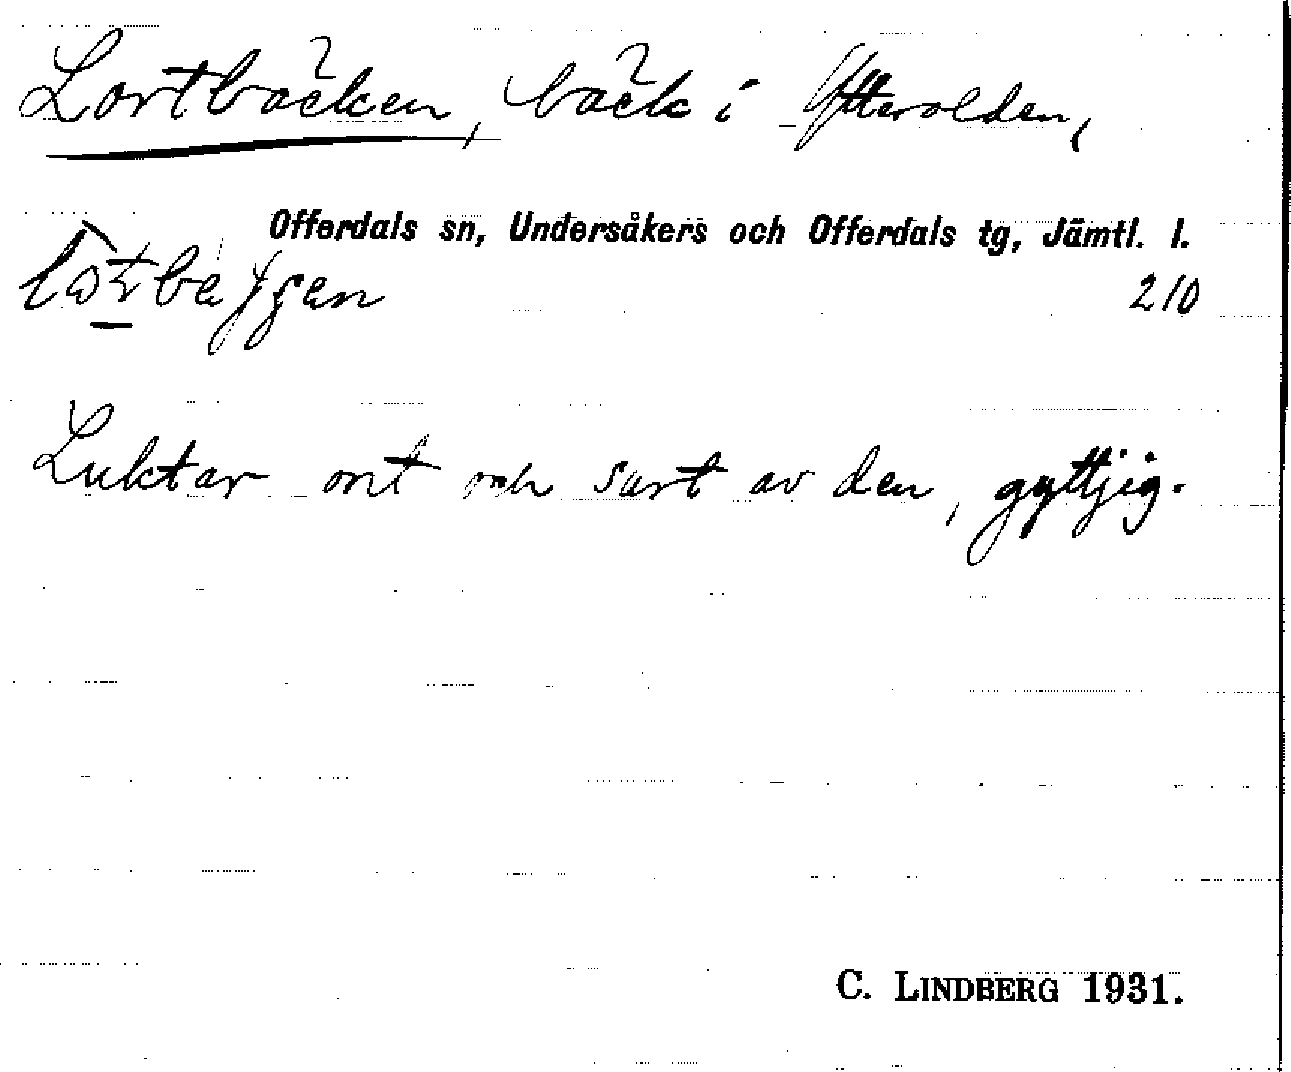 Lortbäcken, bäck i Ytterolden,
Offerdals sn, Undersåkers och Offerdals tg, Jämtl. l.
210
Luktar ont och surt av den, gyttjig.
C. LINDBERG 1931.